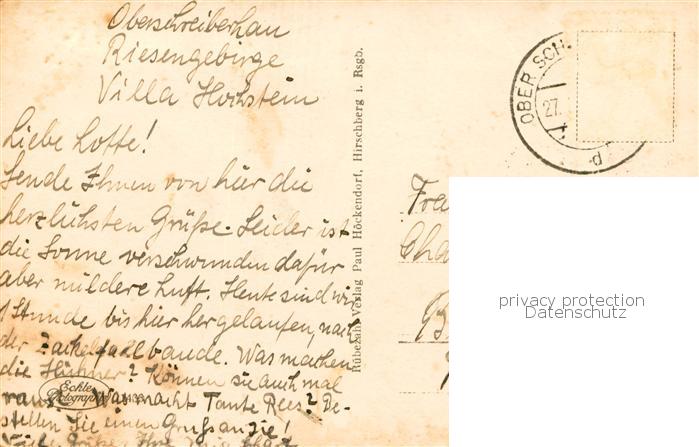 Oberschreiberhau
Riesengebirge
Villa Hochstein
Liebe Lotte!
Sende Ihnen von hier die
herzlichsten Grüße. Leider ist
die Sonne verschwunden dafür
aber mildere Luft. Heute sind wir
1 Stunde bis hier hergelaufen, nach
der Zackelfallbaude. Was machen
die Hühner? Können sie auch mal
raus? Was macht Tante Rees? Be-
stellen Sie einen Gruß an sie!
Viele Grüße Ihre
Echte
Photographie
Rübezahl-Verlag Paul Höckendorf, Hirschberg i. Rsgb.
OBER SCH
27.
d
Frau
Cha
B
privacy protection
Datenschutz